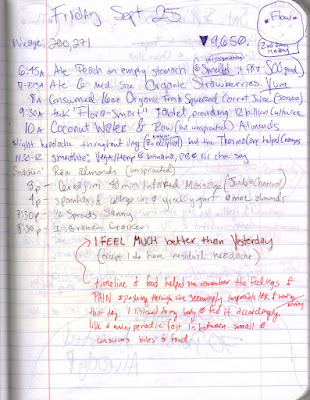 Friday Sept 25
Flow
Wordage: 200,271
▼9,650.
6:45A Ate Peach on empty stomach
Smelled it, SOO good
7-7:35A Ate 6 med. size Organic Strawberries. Yum
8A Consumed 16oz Organic Fresh Squeezed Carrot Juice
9:30A took "Flora-Smart" Tablet, providing 12 billion cultures
10A Coconut Water & Raw (but unsprouted) Almonds
Slight headache throughout day but the ThermaCare helped Cramps
11:30-12 smoothie, banana, chia soy
Snackin! Raw almonds (unsprouted)
2p - 40 min Infrared Massage
4p - spoonfuls of greek yogurt & more almonds
7:30p - ½ Sprouts Sammy
8:30p - 1 Graham Cracker
I FEEL MUCH better than Yesterday
(except I do have residual headache)
timeline & food helped me remember the feelings &
PAIN & pushing through the seemingly impossible
that day. I listened to my body & fed it accordingly
like a mini periodic fast in between small &
conscious bites of food.